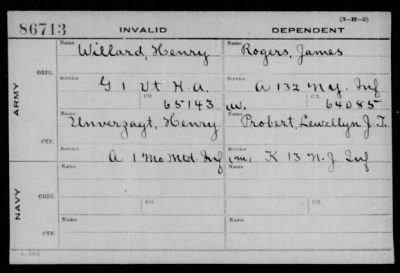 86713 INVALID DEPENDENT (3-H-3)
Name Name
Willard, Henry Rogers, James
ARMY
ORIG. Service Service
G 1 Vt H.A. A 132 N.Y. Inf
Ctf. Ctf.
65143 W. 64085
Name Name
Unverzagt, Henry Probert, Lewellyn J. T.
CTF. Service Service
A 1 Mo Mtd Inf (m) K 13 N.J. Inf
NAVY
Name Name
ORIG. Service Service
Ctf. Ctf.
Name Name
CTF.